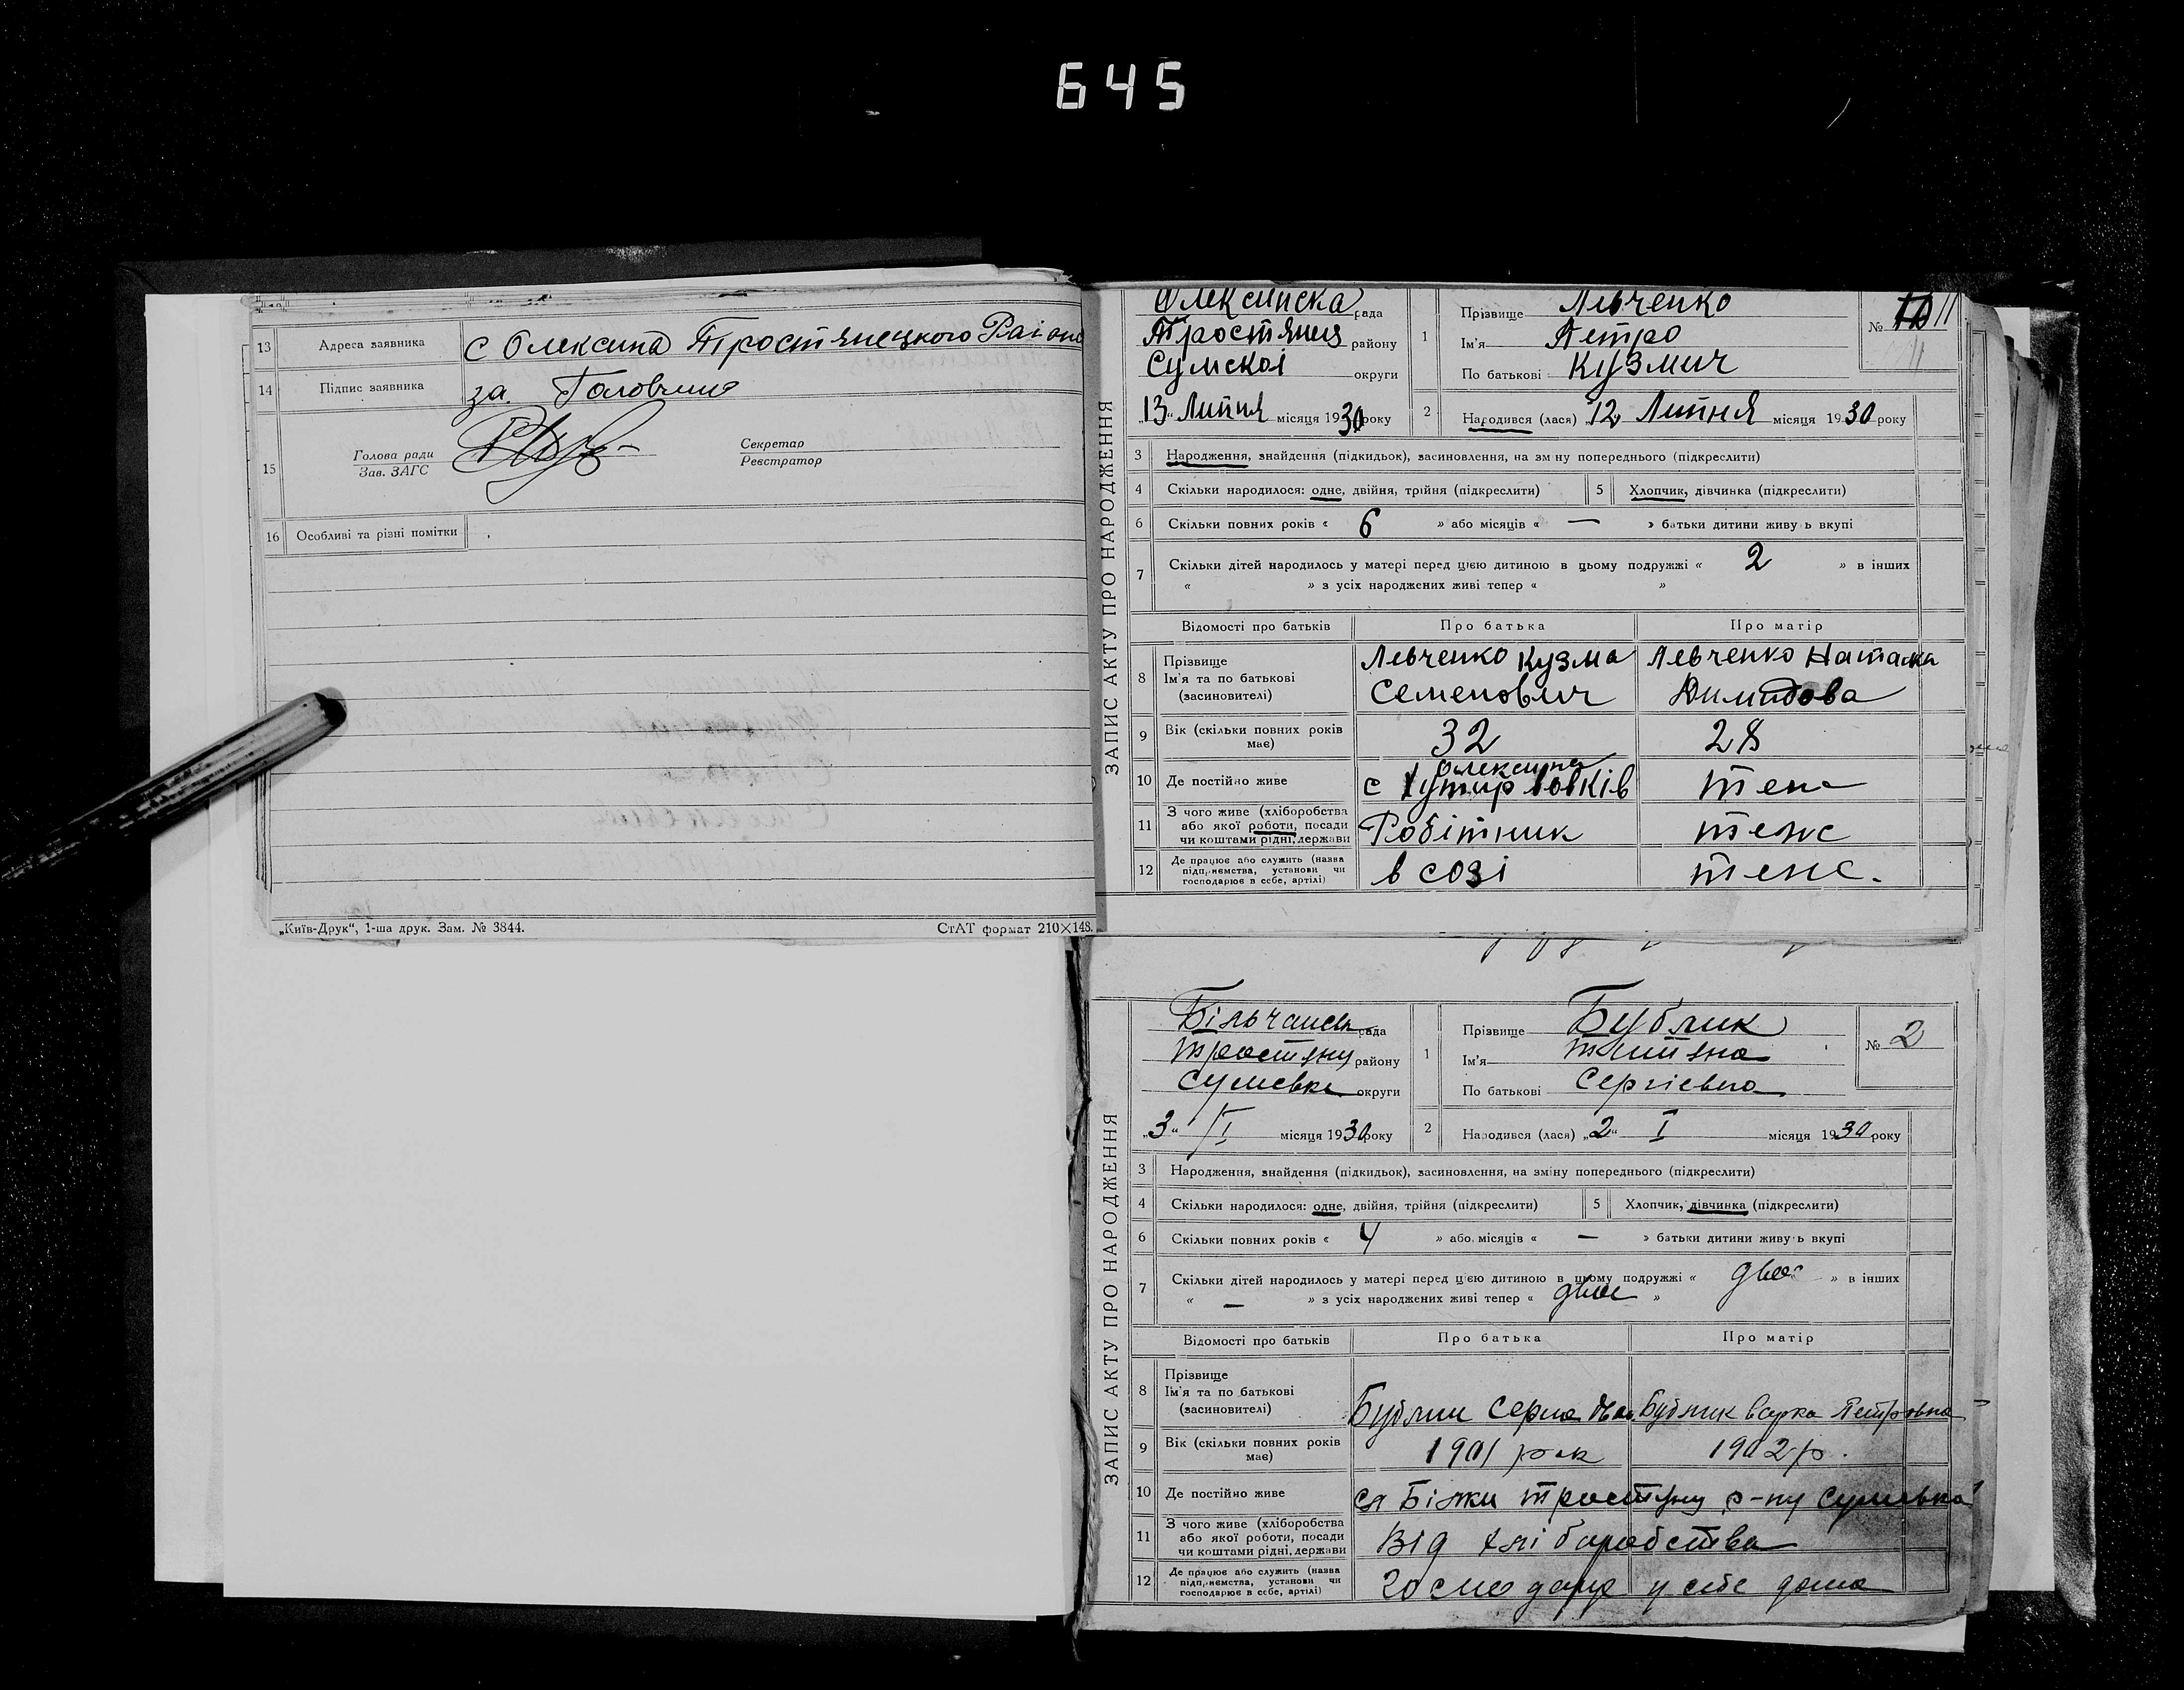 645
13 Адреса заявника с Олексина Тростянецкого Раіона
14 Підпис заявника за
15 Голова ради Секретар
Зав. ЗАГС Реєстратор
16 Особливі та різні помітки
„Київ-Друк“, 1-ша друк. Зам. № 3844. СтАТ формат 210×148.
ЗАПИС АКТУ ПРО НАРОДЖЕННЯ
Олексинска рада
Тростянец району
Сумскоі округи
„13“ Липня місяця 1930 року
1 Прізвище Левченко
Ім'я Петро
По батькові Кузмич
№ 11
2 Народився (лася) „12„ Липня місяця 1930 року
3 Народження, знайдення (підкидьок), засиновлення, на зміну попереднього (підкреслити)
4 Скільки народилося: одне, двійня, трійня (підкреслити) 5 Хлопчик, дівчинка (підкреслити)
6 Скільки повних років « 6 » або місяців « — » батьки дитини живуь вкупі
7 Скільки дітей народилось у матері перед цією дитиною в цьому подружжі « 2 » в інших
« » з усіх народжених живі тепер « »
Відомості про батьків Про батька Про матір
8 Прізвище Ім'я та по батькові (засиновителі) Левченко Кузма Семенович Левченко Наталка
9 Вік (скільки повних років має) 32 28
10 Де постійно живе с Олексина Хутир Вовків теж
11 З чого живе (хліборобства або якої роботи, посади чи коштами рідні, держави Робітник теж
12 Де працює або служить (назва підприємства, установи чи господарює в себе, артілі) в созі теж.
ЗАПИС АКТУ ПРО НАРОДЖЕННЯ
Більчанськ рада
Тростянц району
Сумськ округи
„3“ I місяця 1930 року
1 Прізвище Бублик
Ім'я
По батькові Сергіевна
№ 2
2 Народився (лася) „2“ I місяця 1930 року
3 Народження, знайдення (підкидьок), засиновлення, на зміну попереднього (підкреслити)
4 Скільки народилося: одне, двійня, трійня (підкреслити) 5 Хлопчик, дівчинка (підкреслити)
6 Скільки повних років « 4 » або місяців « — » батьки дитини живуь вкупі
7 Скільки дітей народилось у матері перед цією дитиною в цьому подружжі « двое » в інших
« — » з усіх народжених живі тепер « двое »
Відомості про батьків Про батька Про матір
8 Прізвище Ім'я та по батькові (засиновителі) Бублик Бублик Варка Петровна
9 Вік (скільки повних років має) 1901 рок 1902 р.
10 Де постійно живе сл Білки Тростянц р-ну Сумська
11 З чого живе (хліборобства або якої роботи, посади чи коштами рідні, держави Від хліборобства
12 Де працює або служить (назва підприємства, установи чи господарює в себе, артілі) у себе дома